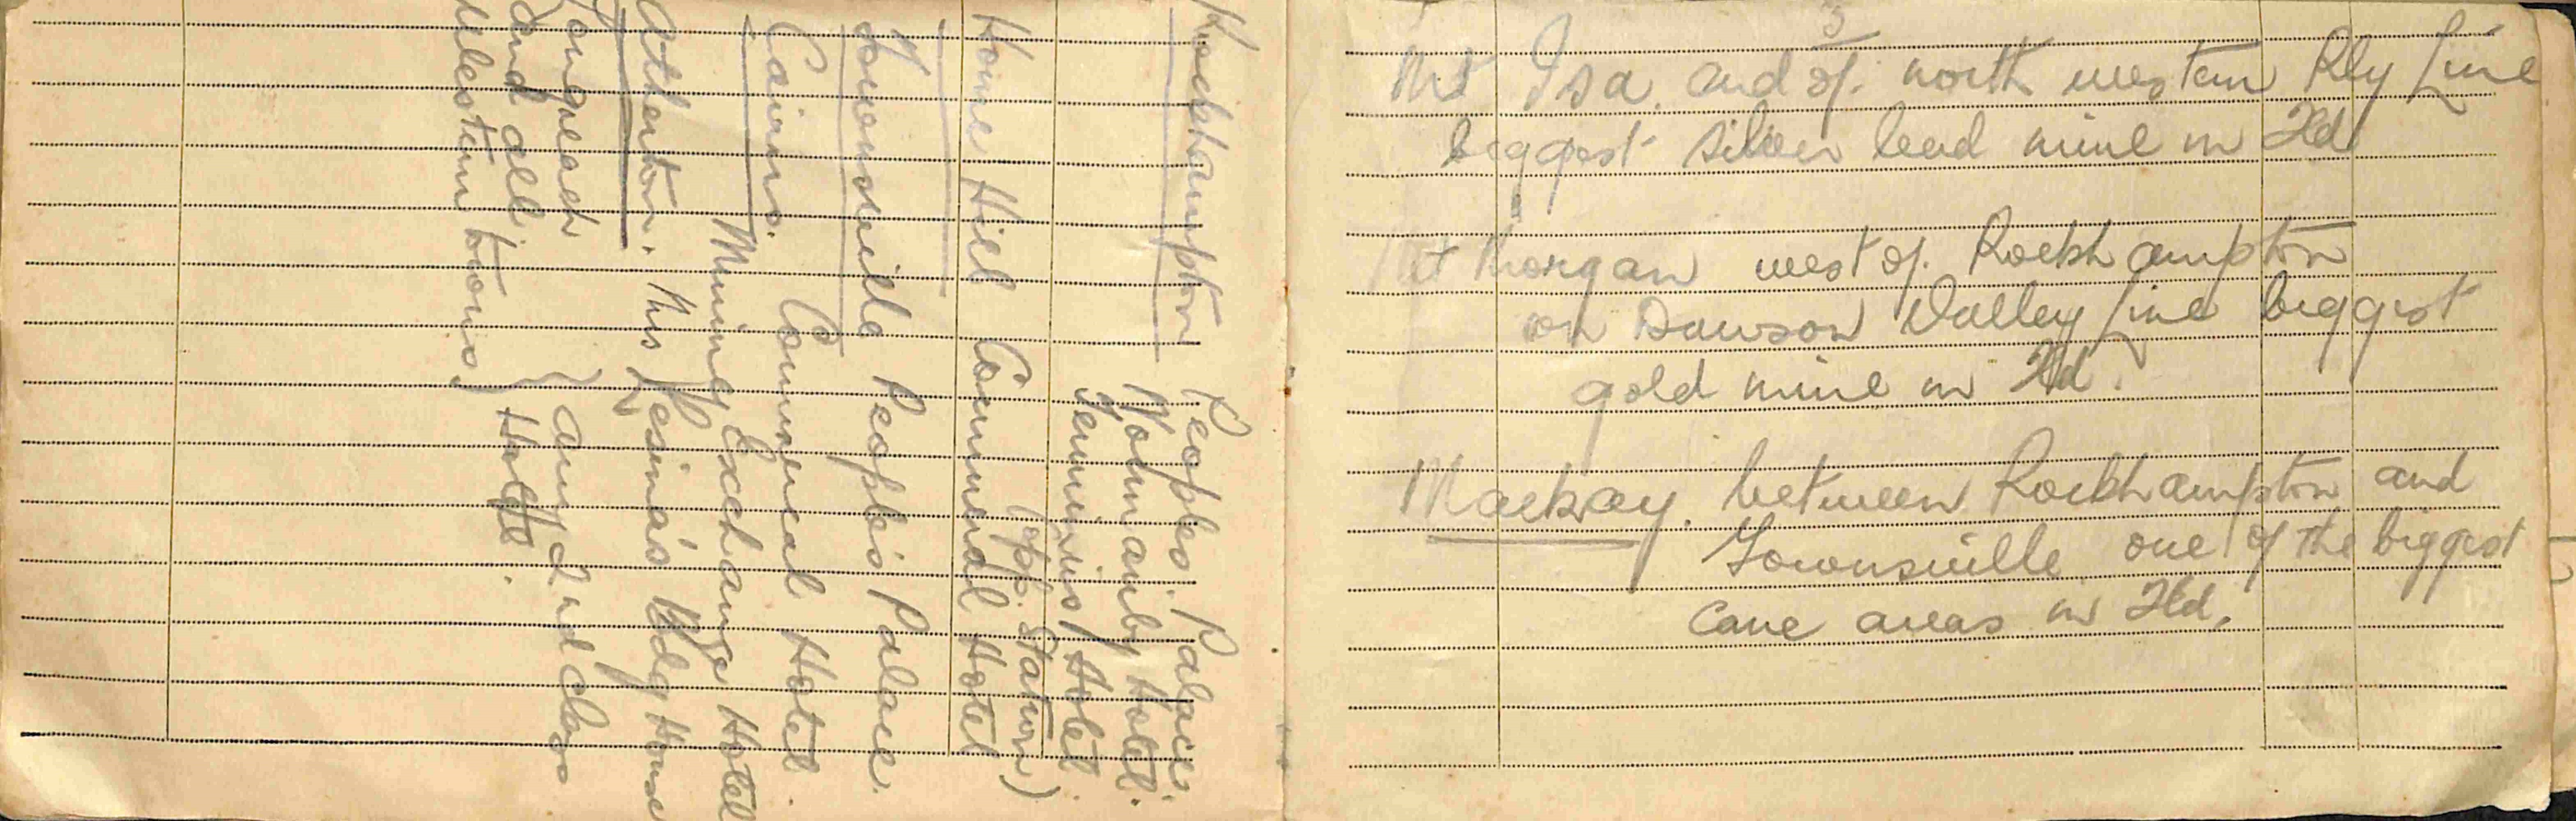 Rockhampton Peoples. Palace.
Wolmanby Hotel.
Terminus Hotel.
Home Hill Commercial Hotel
(opp. Station)
Townsville People's Palace.
Cairns. Commercial Hotel.
Mining Exchange Hotel
Atherton. Mrs Lesina's Bdg House
Longreach
and all } any 2nd class
Western towns Hotels.
3
Mt Isa. end of. north western Rly Line
biggest silver lead mine in Qld
Mt Morgan west of. Rockhampton
on Dawson Valley Line biggest
gold mine in Qld.
Mackay. between Rockhampton and
Townsville one of the biggest
cane areas in Qld.